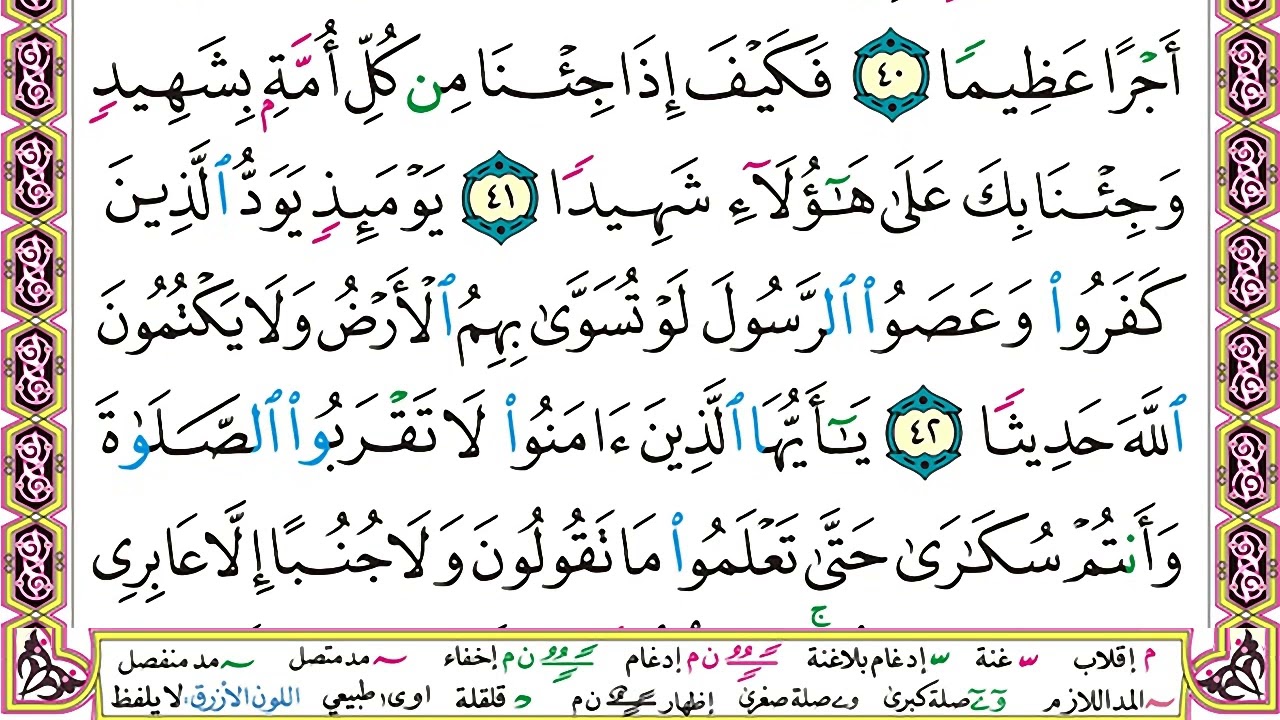 أَجْرًا عَظِيمًا ٤٠ فَكَيْفَ إِذَا جِئْنَا مِن كُلِّ أُمَّةِۭ بِشَهِيدٍ
وَجِئْنَا بِكَ عَلَىٰ هَٰٓؤُلَآءِ شَهِيدًا ٤١ يَوْمَئِذٍ يَوَدُّ ٱلَّذِينَ
كَفَرُوا۟ وَعَصَوُا۟ ٱلرَّسُولَ لَوْ تُسَوَّىٰ بِهِمُ ٱلْأَرْضُ وَلَا يَكْتُمُونَ
ٱللَّهَ حَدِيثًا ٤٢ يَٰٓأَيُّهَا ٱلَّذِينَ ءَامَنُوا۟ لَا تَقْرَبُوا۟ ٱلصَّلَوٰةَ
وَأَنتُمْ سُكَٰرَىٰ حَتَّىٰ تَعْلَمُوا۟ مَا تَقُولُونَ وَلَا جُنُبًا إِلَّا عَابِرِى
م إقلاب س غنة س إدغام بلاغنة ن م إدغام ن م إخفاء مد متصل مد منفصل
المد اللازم صلة كبرى صلة صغرى ن م إظهار د قلقلة اوى طبيعي اللون الأزرق: لا يلفظ